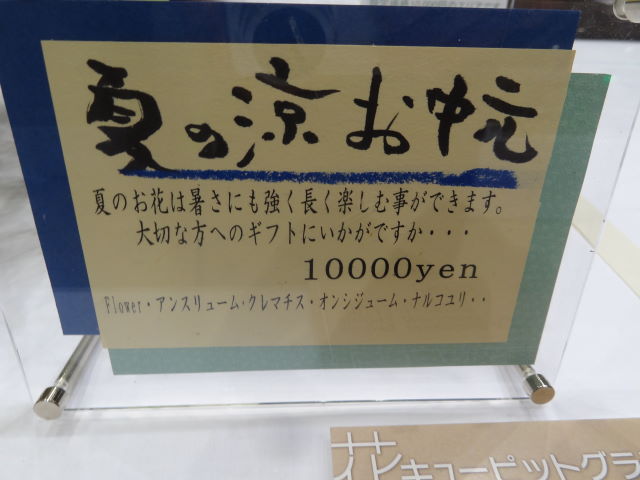 夏の涼 お中元
夏のお花は暑さにも強く長く楽しむ事ができます。
大切な方へのギフトにいかがですか・・・
10000yen
Flower・アンスリューム・クレマチス・オンシジューム・ナルコユリ・・
花キューピットグラ